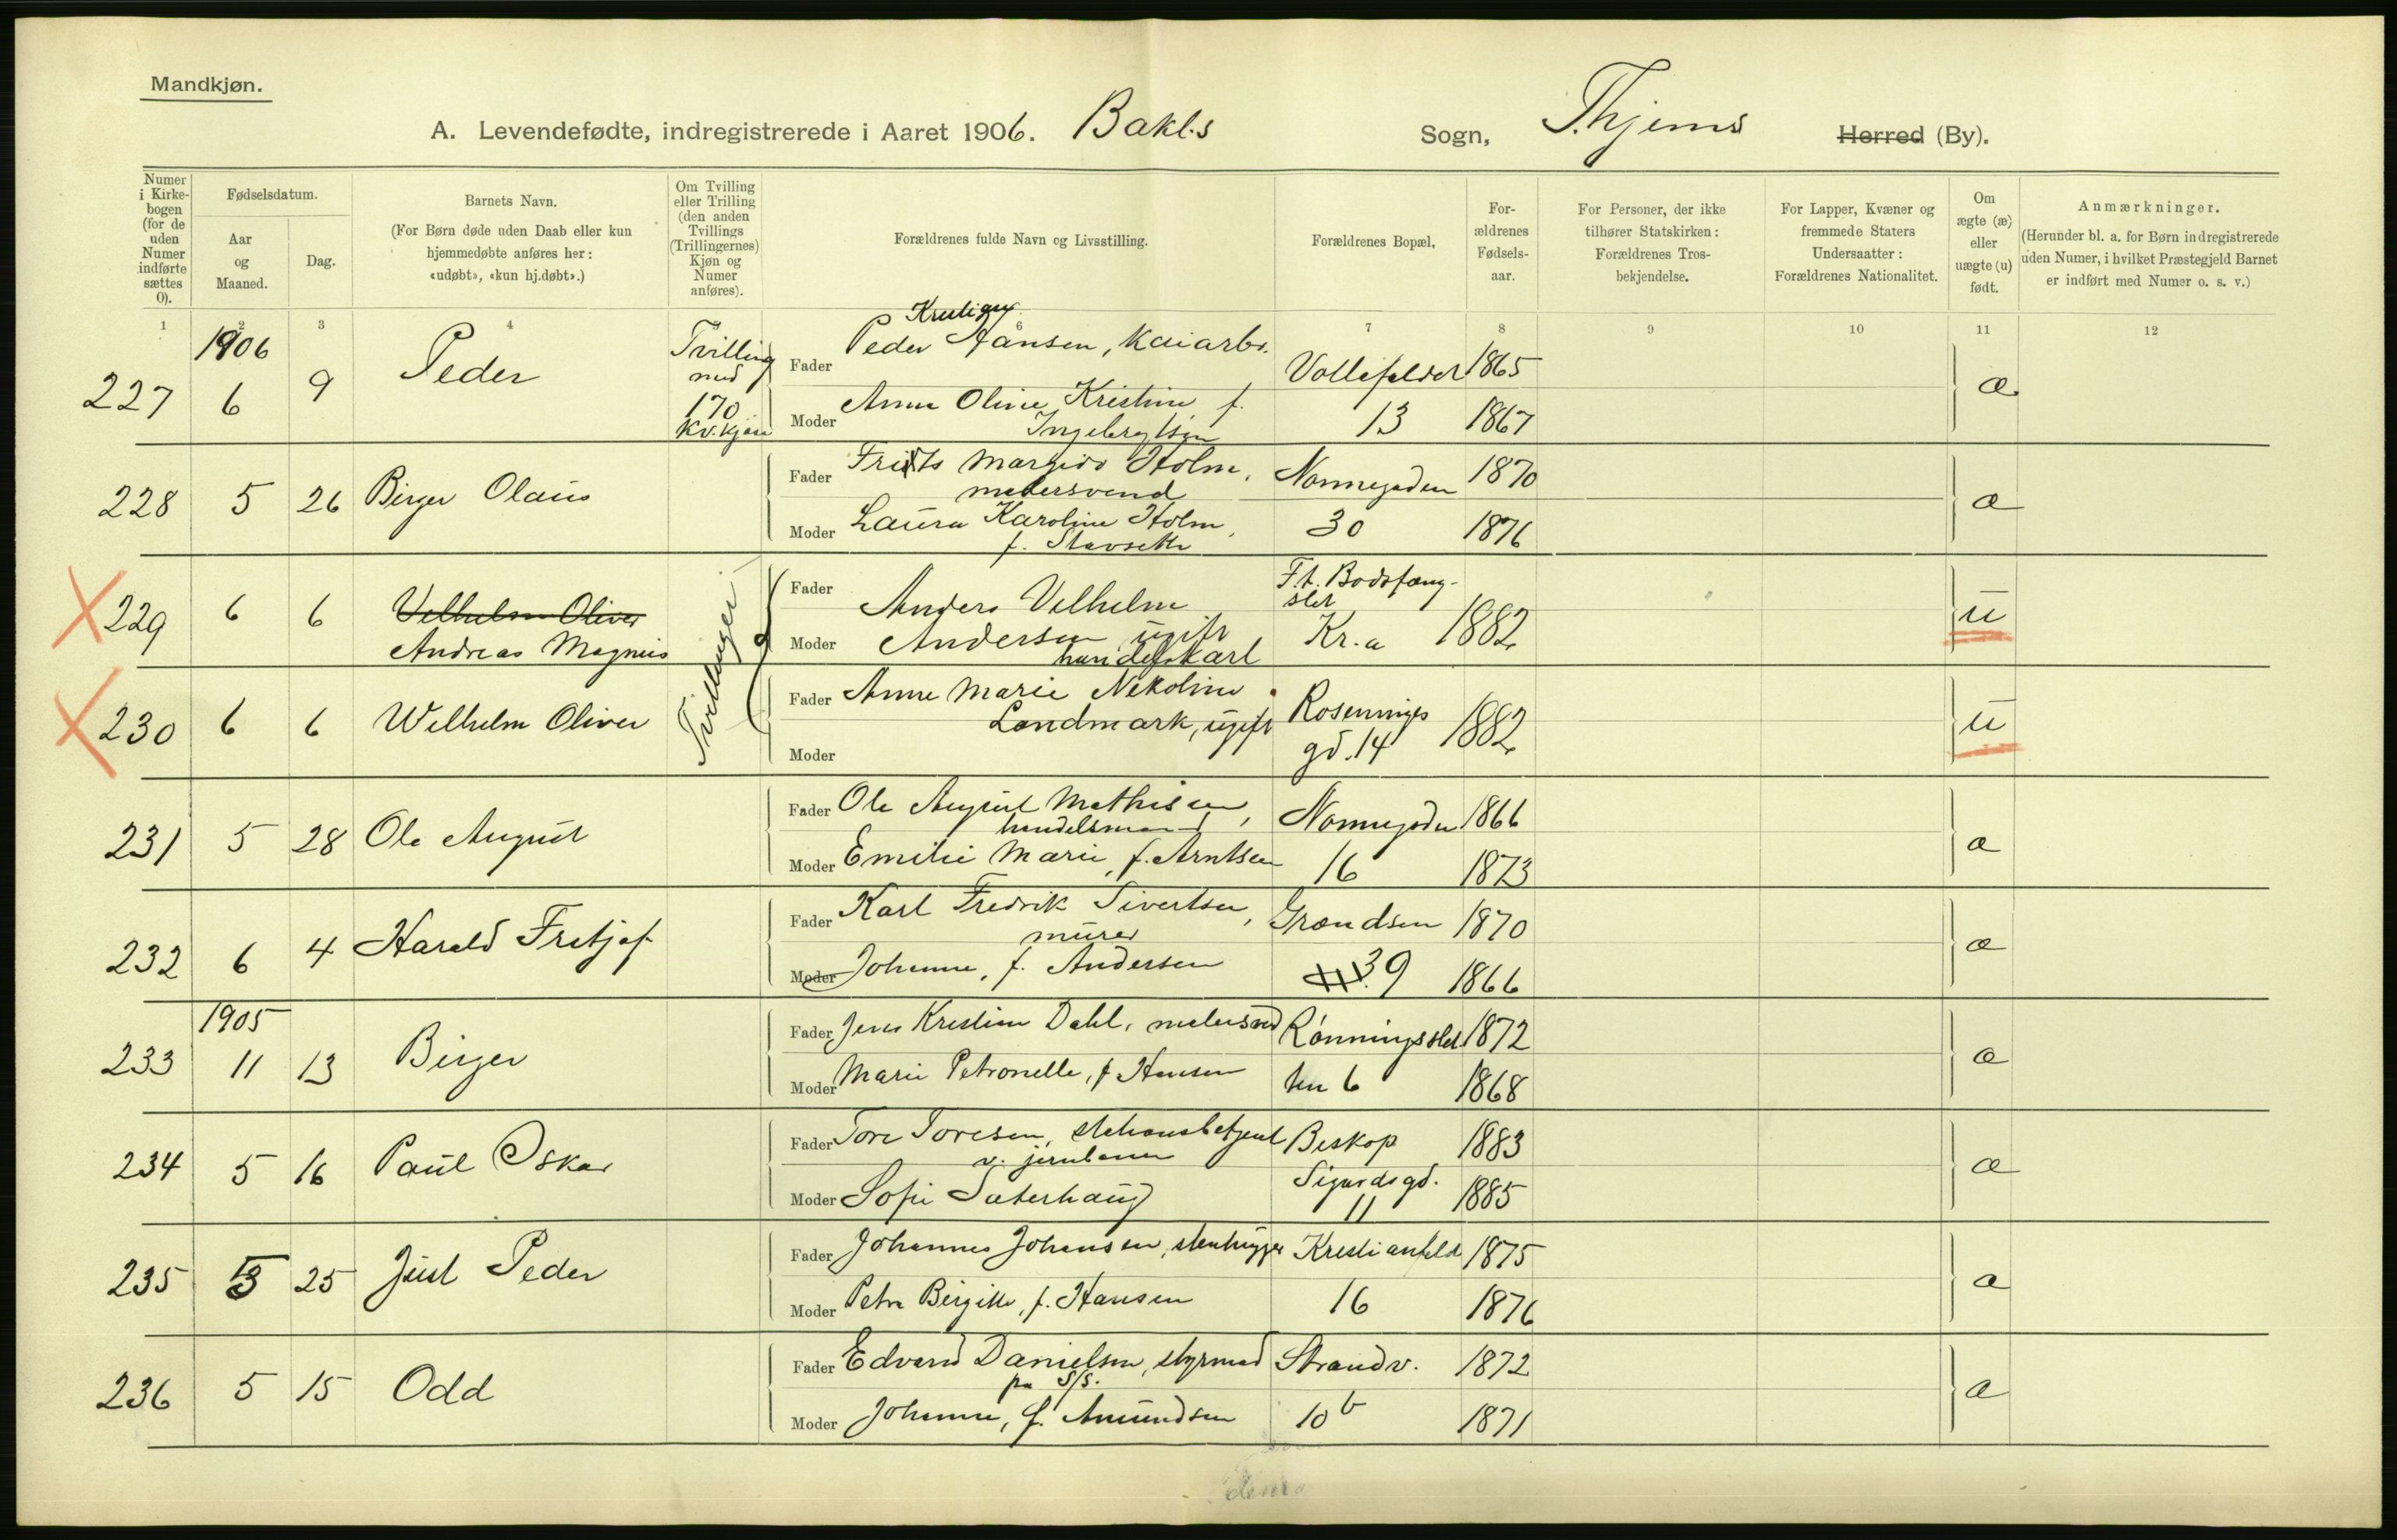 Mandkjøn.
A. Levendefødte, indregistrerede i Aaret 1906. Bakl.s Sogn, T.hjems Herred (By).
Numer i Kirkebogen (for de uden Numer indførte sættes 0).
Fødselsdatum.
Aar og Maaned.
Dag.
Barnets Navn.
(For Børn døde uden Daab eller kun hjemmedøbte anføres her: «udøbt», «kun hj.døbt».)
Om Tvilling eller Trilling (den anden Tvillings (Trillingernes) Kjøn og Numer anføres).
Forældrenes fulde Navn og Livsstilling.
Forældrenes Bopæl,
Forældrenes Fødselsaar.
For Personer, der ikke tilhører Statskirken: Forældrenes Trosbekjendelse.
For Lapper, Kvæner og fremmede Staters Undersaatter: Forældrenes Nationalitet.
Om ægte (æ) eller uægte (u) født.
Anmærkninger.
(Herunder bl. a. for Børn indregistrerede uden Numer, i hvilket Præstegjeld Barnet er indført med Numer o. s. v.)
1 2 3 4 6 7 8 9 10 11 12
1906
227 6 9 Peder Tvilling med 170 Kv.kjøn
Fader Peder Hansen, Kaiarb. Vollafaldet 1865 æ
Moder Anne Oline Kristine f. Ingebrigtsen 13 1867
228 5 26 Birger Olaus
Fader Frits Margido Holm, malersvend Nonnegaden 1870 æ
Moder Laura Karoline Holm, f. Stavseth 30 1876
229 6 6 Vilhelm Oliver
Andreas Magnus
Tvillinger
Fader Anders Vilhelm F.t. Bodsfængslet
Moder Andersen ugift, handelskarl Kr.a 1882 u
230 6 6 Wilhelm Oliver
Fader Anne Marie Nikoline Landmark, ugift Rosenborgs gd. 14 1882 u
Moder
231 5 28 Ole August
Fader Ole August Mathisen, handelsmand Nonnegaden 1866 æ
Moder Emilie Marie, f. Arntsen 16 1873
232 6 4 Harald Fritjof
Fader Karl Fredrik Sivertsen, murer Grændsen 1870 æ
Moder Johanne, f. Andersen 39 1866
1905
233 11 13 Birger
Fader Jens Kristian Dahl, malersvd Rønningsslet 1872 æ
Moder Marie Petronelle, f Hansen ten 6 1868
234 5 16 Paul Oskar
Fader Tore Toresen, stationsbetjent v. jernbanen Biskop 1883 æ
Moder Sofie Sæterhaug Sigurdsgd. 11 1885
235 5 25 Just Peder
Fader Johannes Johansen, stenhugger Kristianfeld 1875 æ
Moder Petra Birgitte, f. Hansen 16 1876
236 5 15 Odd
Fader Edvard Danielsen, styrmand paa S/S. Strandv. 1872 æ
Moder Johanne, f. Amundsen 10 b 1871